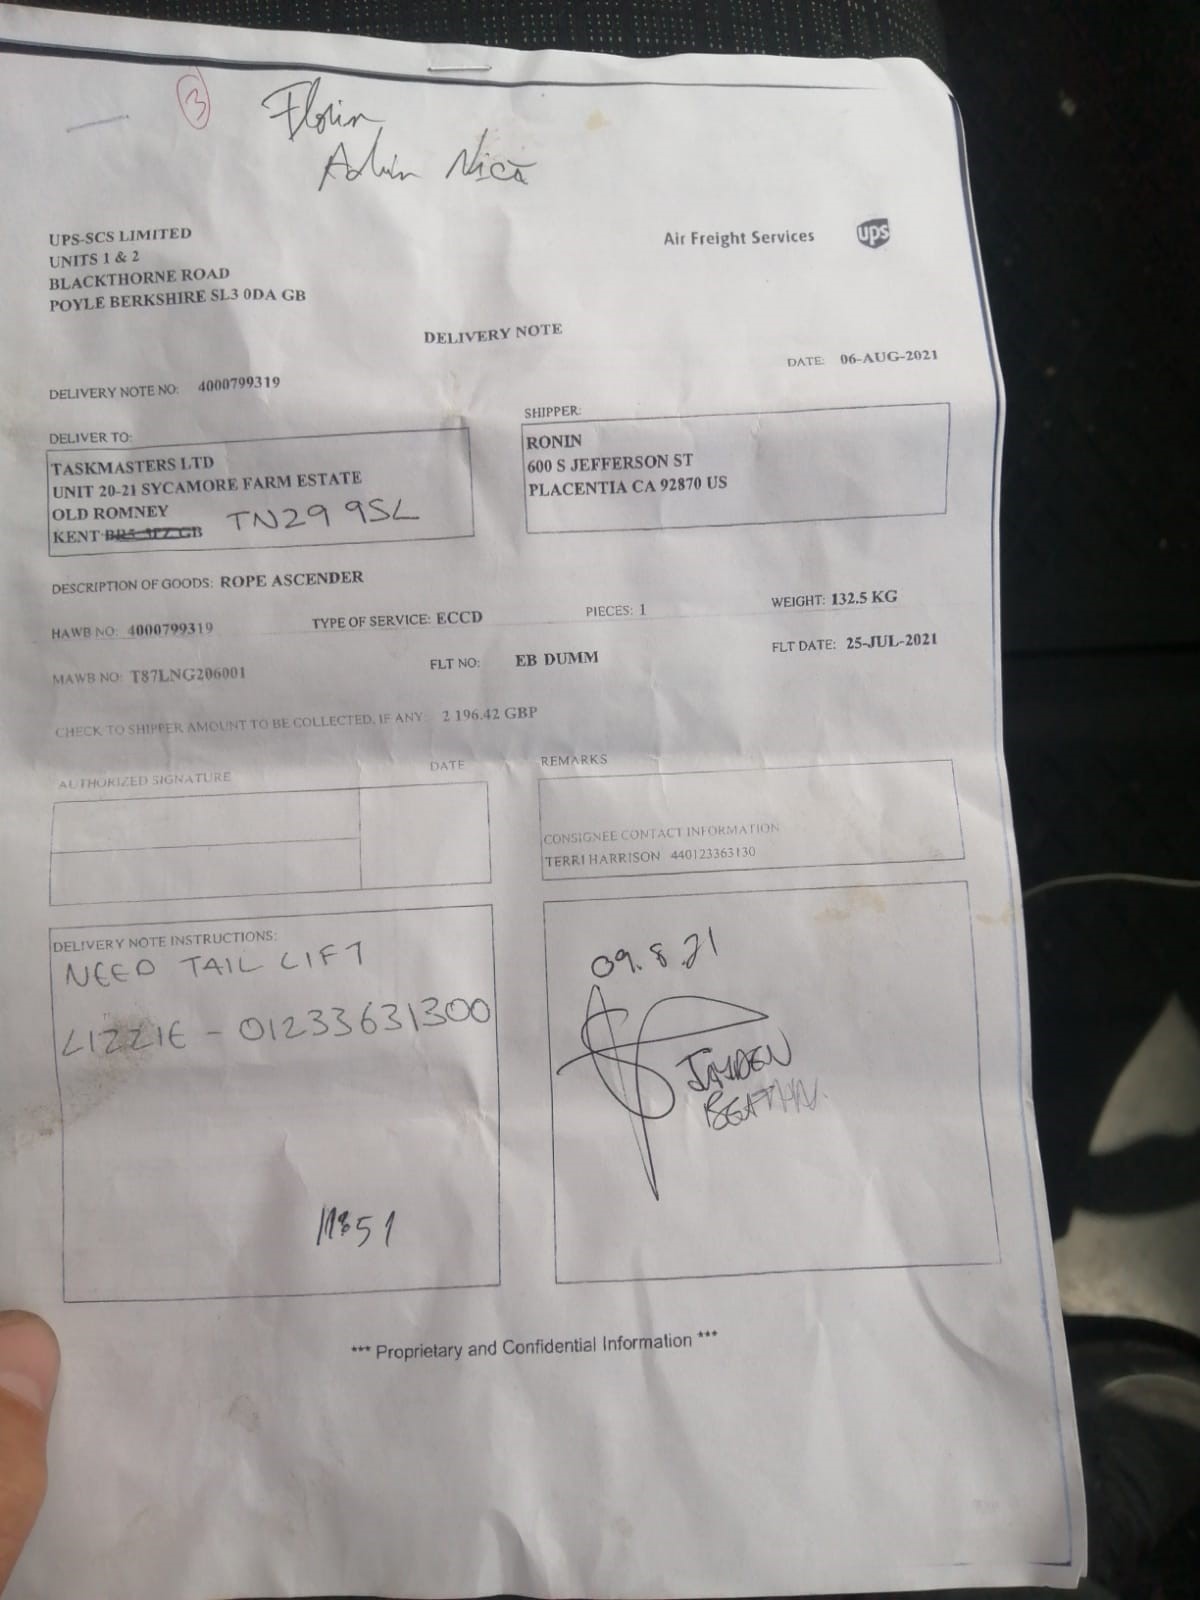 3
Florin
Adrian Nica
UPS-SCS LIMITED
UNITS 1 & 2
BLACKTHORNE ROAD
POYLE BERKSHIRE SL3 0DA GB
Air Freight Services
ups
DELIVERY NOTE
DATE: 06-AUG-2021
DELIVERY NOTE NO: 4000799319
DELIVER TO:
TASKMASTERS LTD
UNIT 20-21 SYCAMORE FARM ESTATE
OLD ROMNEY
KENT GB TN29 9SL
SHIPPER:
RONIN
600 S JEFFERSON ST
PLACENTIA CA 92870 US
DESCRIPTION OF GOODS: ROPE ASCENDER
HAWB NO: 4000799319 TYPE OF SERVICE: ECCD PIECES: 1 WEIGHT: 132.5 KG
MAWB NO: T87LNG206001 FLT NO: EB DUMM FLT DATE: 25-JUL-2021
CHECK TO SHIPPER AMOUNT TO BE COLLECTED, IF ANY: 2 196.42 GBP
AUTHORIZED SIGNATURE DATE
REMARKS
CONSIGNEE CONTACT INFORMATION
TERRI HARRISON 440123363130
DELIVERY NOTE INSTRUCTIONS:
NEED TAIL LIFT
LIZZIE - 01233631300
09.8.21
JAYDEN
*** Proprietary and Confidential Information ***